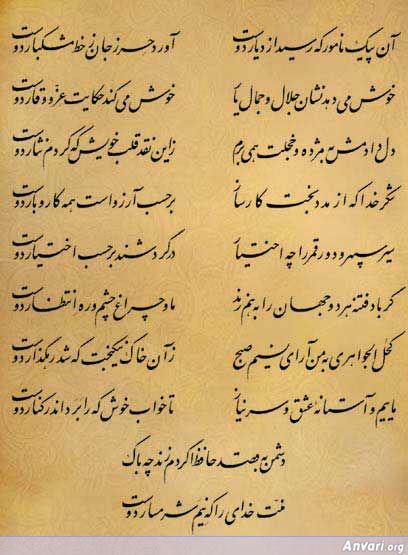 آن پیک نامور که رسید از دیار دوست آورد حرز جان ز خط مشکبار دوست
خوش می دهد نشان جلال و جمال یار خوش می کند حکایت عز و وقار دوست
دل دادمش به مژده و خجلت همی برم زین نقد قلب خویش که کردم نثار دوست
شکر خدا که از مدد بخت کارساز بر حسب آرزو است همه کار و بار دوست
سیر سپهر و دور قمر را چه اختیار در گردشند بر حسب اختیار دوست
گر باد فتنه هر دو جهان را به هم زند ما و چراغ چشم و ره انتظار دوست
کحل الجواهری به من آر ای نسیم صبح زان خاک نیکبخت که شد رهگذار دوست
ماییم و آستانه عشق و سر نیاز تا خواب خوش که را برد اندر کنار دوست
دشمن به قصد حافظ اگر دم زند چه باک
منت خدای را که نیم شرمسار دوست
Anvari.org